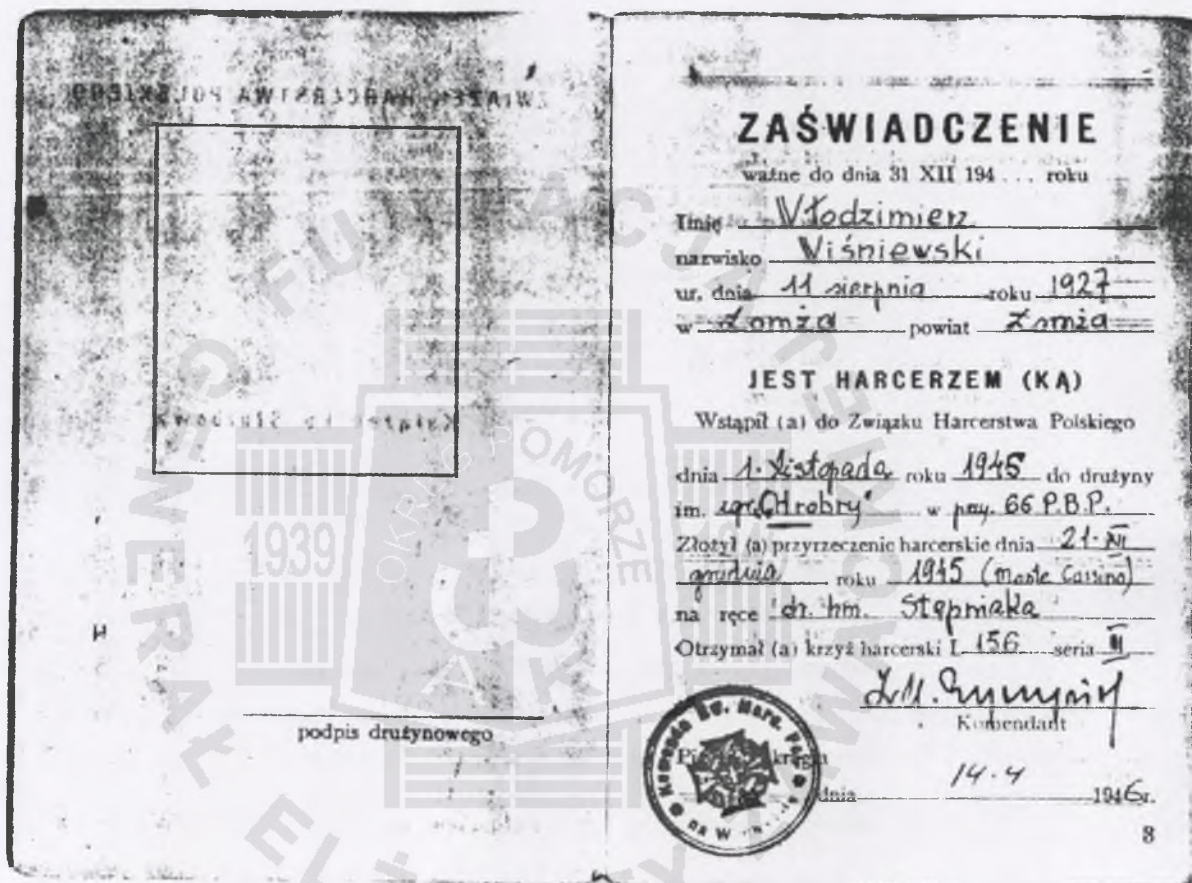 podpis drużynowego
ZAŚWIADCZENIE
ważne do dnia 31 XII 194 . . . roku
Imię Włodzimierz
nazwisko Wiśniewski
ur. dnia 11 sierpnia roku 1927
w Łomża powiat Łomża
JEST HARCERZEM (KĄ)
Wstąpił (a) do Związku Harcerstwa Polskiego
dnia 1. Listopada roku 1945 do drużyny
im. "Chrobry" w 66 P.B.P.
Złożył (a) przyrzeczenie harcerskie dnia 21. XII
grudnia roku 1945 (Monte Cassino)
na ręce dr. hm. Stępniaka
Otrzymał (a) krzyż harcerski L 156 seria III
Komendant
Komenda Harc.
na W
dnia 14.4 1946r.
3
FUNDACJA GENERAŁ ELŻBIETY
OKRĘG POMORZE
1939
AK